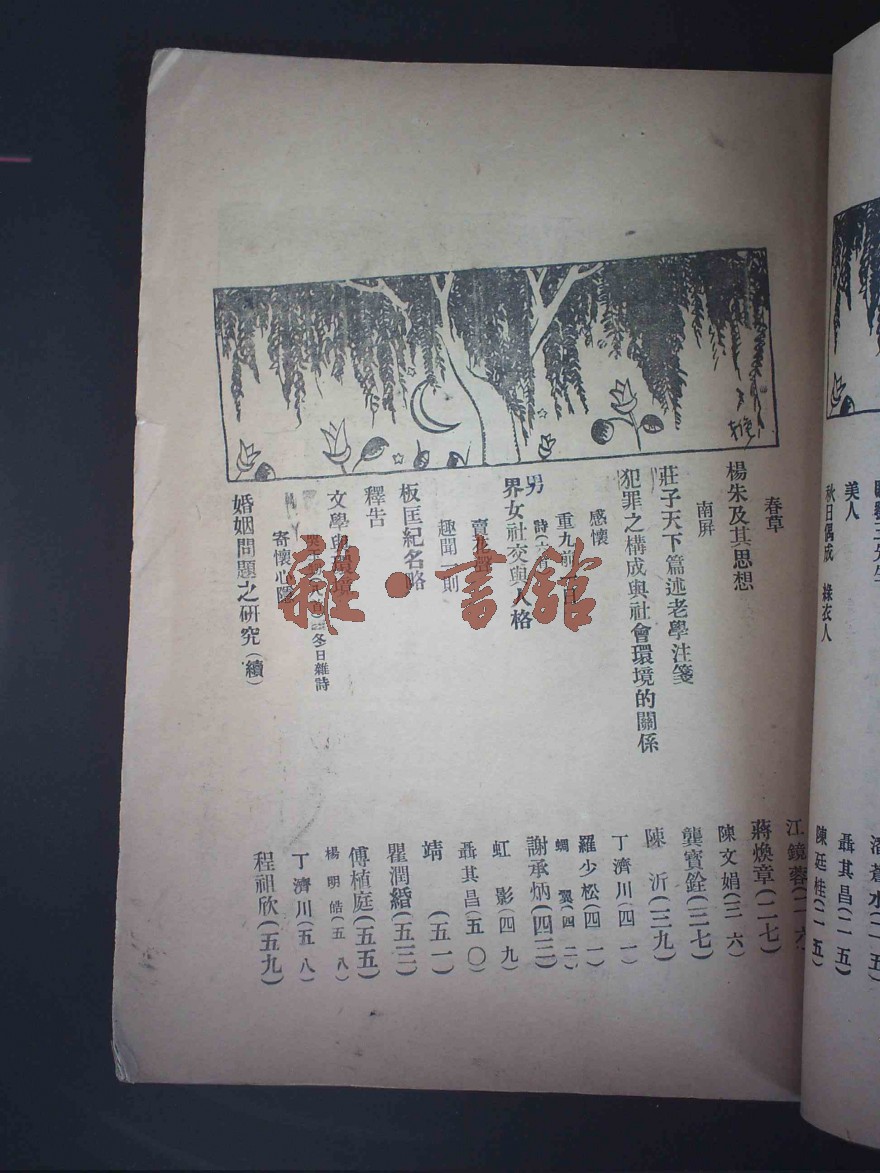 美人 聶其昌(一五)
秋日偶成 綠衣人 陳廷桂(二五)
春草 江鏡蓉
楊朱及其思想 蔣煥章(二七)
南屏 陳文娟(三六)
莊子天下篇述老學注箋 龔寶銓(三七)
犯罪之構成與社會環境的關係 陳沂(三九)
感懷 丁濟川(四一)
重九前一日 羅少松(四一)
詩 蜩翼(四二)
男
界女社交與人格 謝承炳(四三)
賣花聲 虹影(四九)
趣聞一則 聶其昌(五〇)
板匡紀名略 靖(五一)
釋告 瞿潤緡(五三)
文學與環境 傅植庭(五五)
冬日雜詩 楊明皓(五八)
寄懷心隱 丁濟川(五八)
婚姻問題之研究(續) 程祖欣(五九)
雜·書館